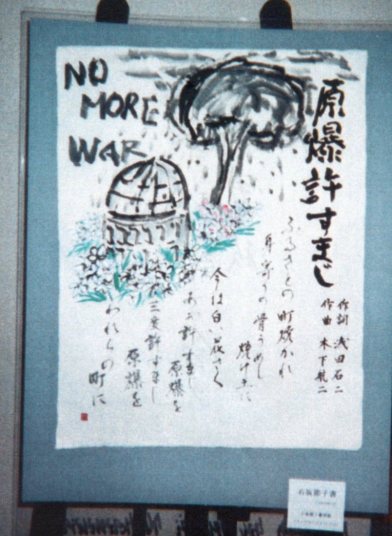 NO
MORE
WAR
原爆許すまじ
作詞 浅田石二
作曲 木下航二
ふるさとの 町焼かれ
身寄りの骨うめし
焼け土に
今は白い 花さく
ああ許すまじ
原爆を
三度許すまじ
原爆を
われらの
町に